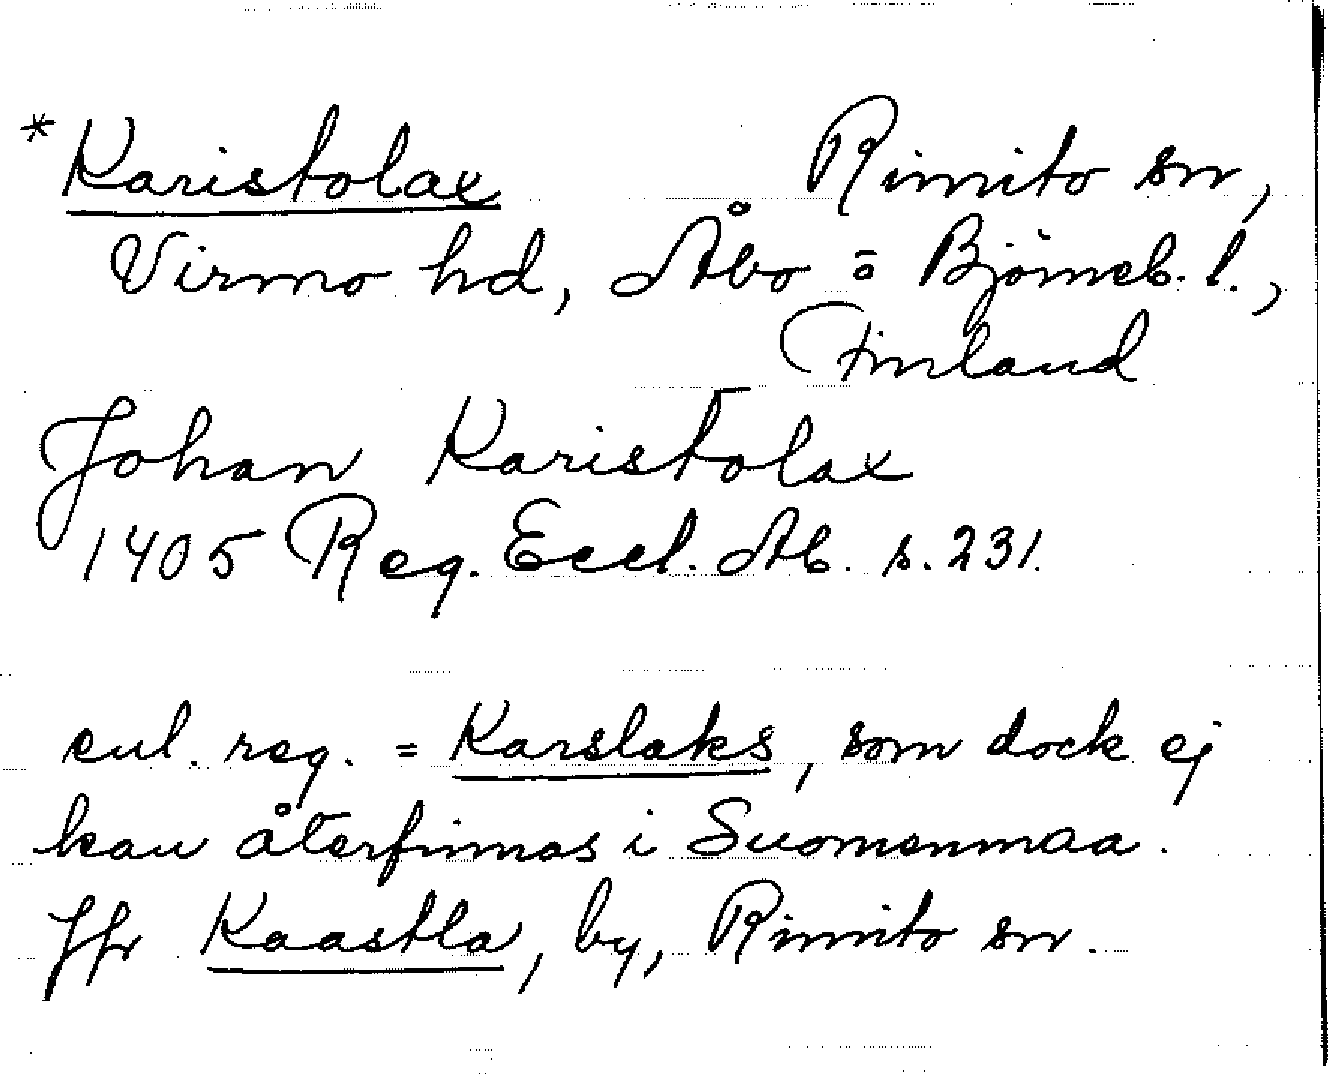 * Karistolax Rimito sn,
Virmo hd, Åbo = Björneb. l.,
Finland
Johan Karistolax
1405 Reg. Eccl. Ab. s. 231.
enl. reg. = Karslaks, som dock ej
kan återfinnas i Suomenmaa.
Jfr Kaastla, by, Rimito sn.